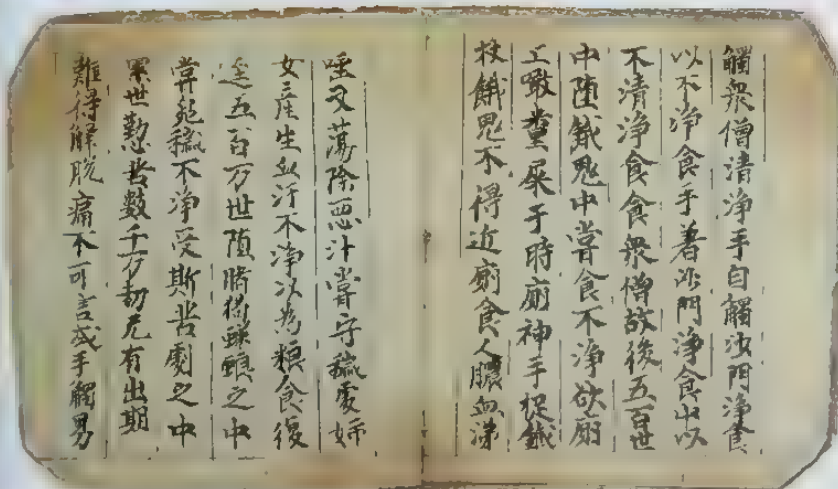 觸衆僧清淨手自觸沙門淨食
以不淨食手著沙門淨食中以
不清淨食食衆僧故後五百世
中墮餓鬼中常食不淨欲廁
上噉糞屎于時廁神手捉鐵
杖餓鬼不得近廁食人膿血涕
唾又蕩除惡汁常守穢處婦
女產生血汙不淨以為粮食復
逕五百万世墮賭猪蜣蜋之中
常菀穢不淨受斯苦劇之中
累世懃苦數千万劫无有出期
難得解脫痛不可言或手觸男